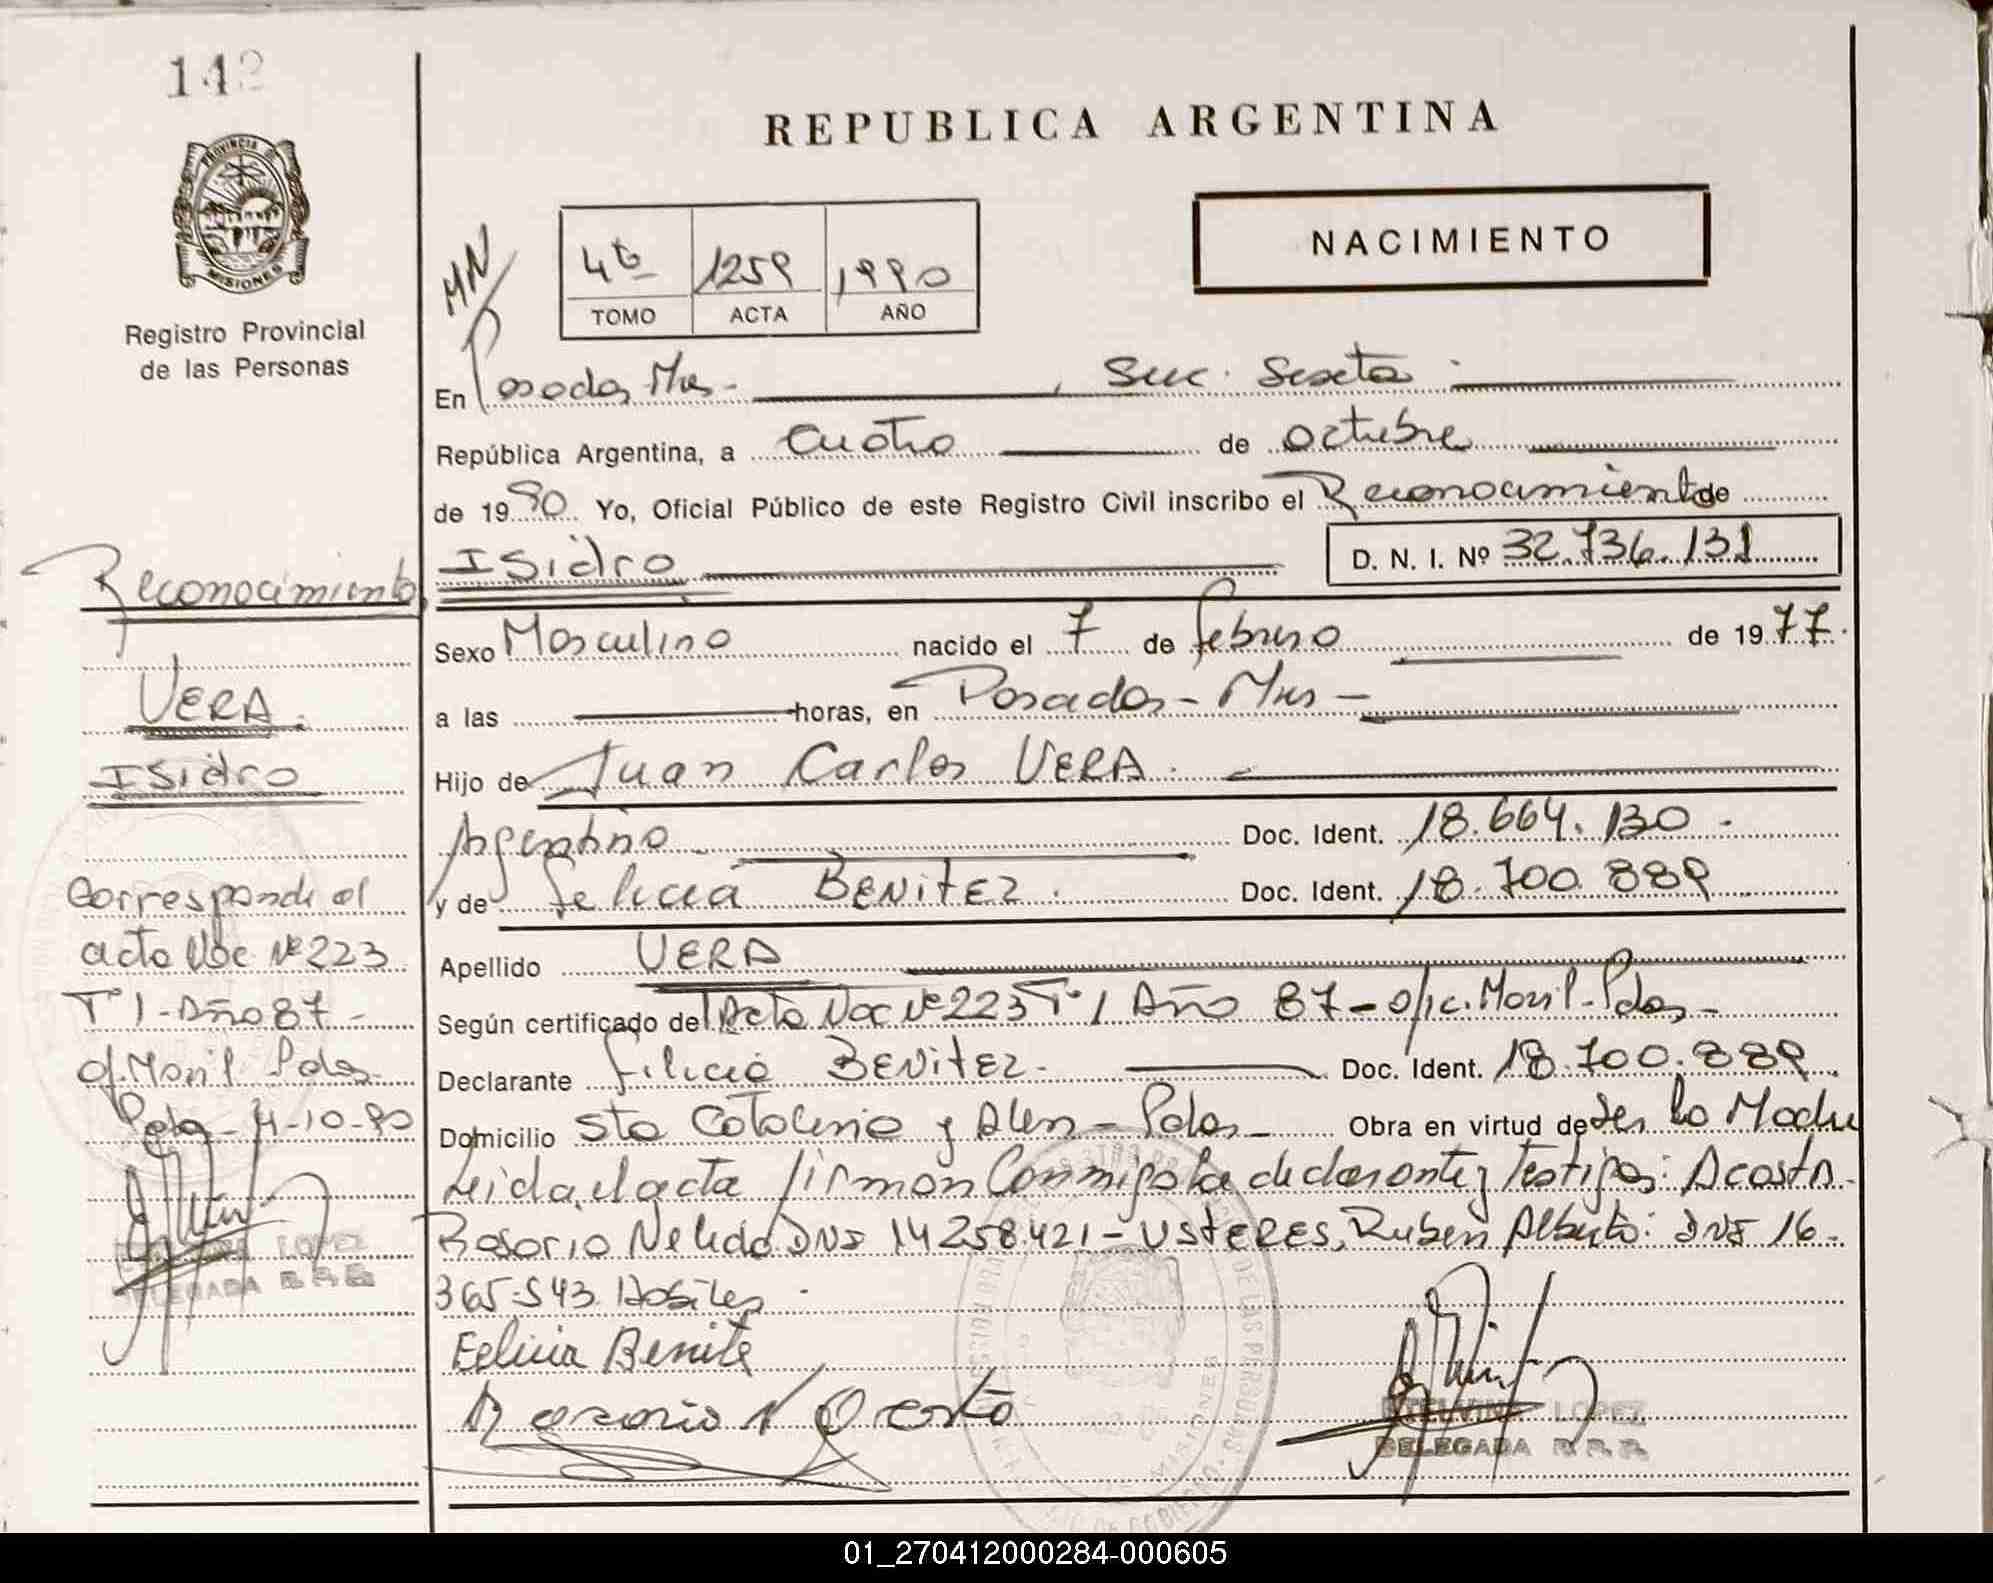 142
REPUBLICA ARGENTINA
PROVINCIA DE
MISIONES
Registro Provincial
de las Personas
MN
4to 1259 1990
TOMO ACTA AÑO
NACIMIENTO
En Posadas Mnes. , Sec. Sexta
República Argentina, a Cuatro de octubre
de 1990. Yo, Oficial Público de este Registro Civil inscribo el Reconocimiento de
Isidro D. N. I. Nº 32.736.131
Sexo Masculino nacido el 7 de febrero de 1977.
a las horas, en Posadas - Mnes -
Hijo de Juan Carlos VERA.
Argentino Doc. Ident. 18.664.130.
y de Felicia BENITEZ. Doc. Ident. 18.700.889
Apellido VERA
Según certificado del Acta Nac Nº 223 Tº 1 Año 87 - ofic. Movil - Pdas -
Declarante Felicia BENITEZ. Doc. Ident. 18.700.889.
Domicilio Sta Catalina y Alem - Pdas - Obra en virtud de Ser la Madre
Leida el acta firman Conmigo la declarante y Testigos: Acosta
Rosario Nelida DNI 14258.421 - USTERES, Ruben Alberto: DNI 16.
365.543. Habiles.
Felicia Benite
Rosario N Acosta
ESTELVINA LOPEZ
DELEGADA R.P.P.
Reconocimiento
VERA.
Isidro
Corresponde al
acta Nac Nº 223
Tº 1 - Año 87 -
of. Movil Pdas.
Pdas - 4-10-90
LOPEZ
DELEGADA R.P.P.
DE LAS PERSONAS
MISIONES
01_270412000284-000605